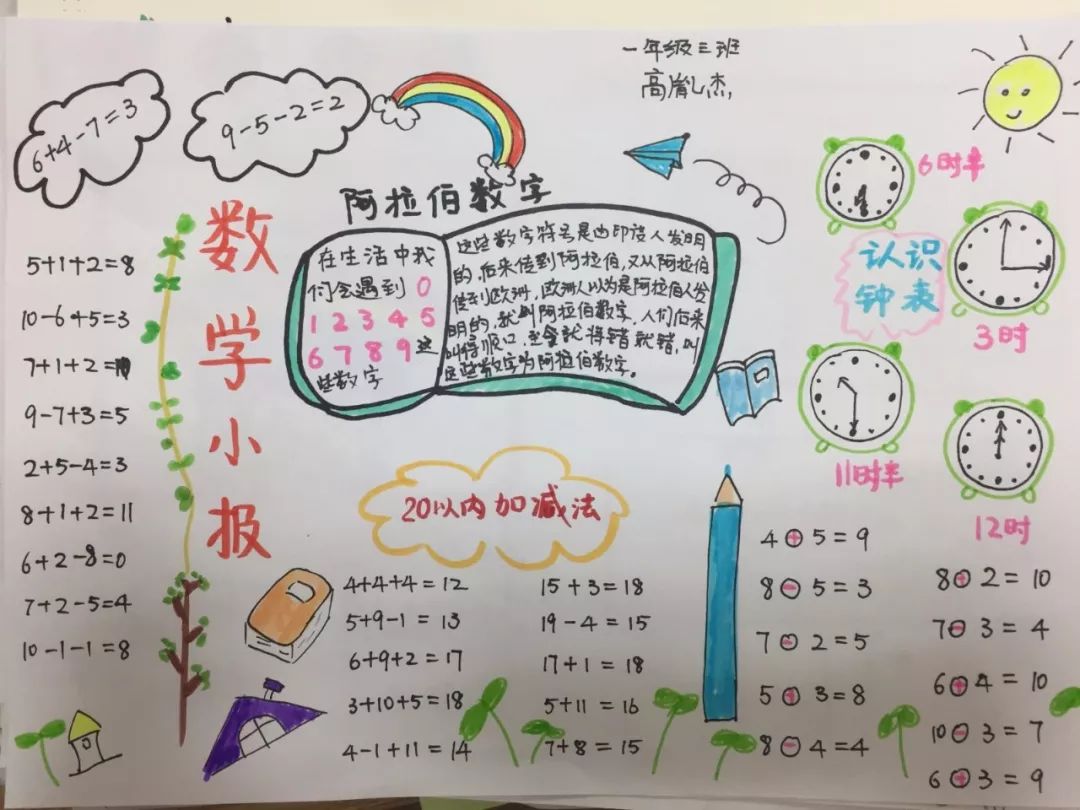 一年级三班
高胤杰
6+4-7=3
9-5-2=2
数学小报
5+1+2=8
10-6+5=3
7+1+2=10
9-7+3=5
2+5-4=3
8+1+2=11
6+2-8=0
7+2-5=4
10-1-1=8
阿拉伯数字
在生活中我
们会遇到0
1 2 3 4 5
6 7 8 9 这
些数字
这些数字符号是由印度人发明
的,后来传到阿拉伯,又从阿拉伯
传到欧洲,欧洲人以为是阿拉伯人发
明的,就叫阿拉伯数字,人们后来
叫得顺口,就将错就错,叫
这些数字为阿拉伯数字。
认识
钟表
6时半
3时
11时半
12时
20以内加减法
4+4+4=12
5+9-1=13
6+9+2=17
3+10+5=18
4-1+11=14
15+3=18
19-4=15
17+1=18
5+11=16
7+8=15
4+5=9
8-5=3
7-2=5
5+3=8
8-4=4
8+2=10
7-3=4
6+4=10
10-3=7
6+3=9